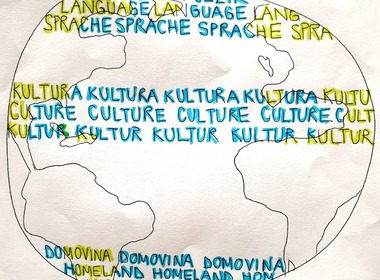 LANGUAGE LANGUAGE LANG
SPRACHE SPRACHE SPRACHE SPRA
KULTURA KULTURA KULTURA KULTURA KULTU
CULTURE CULTURE CULTURE CULTURE CULT
KULTUR KULTUR KULTUR KULTUR KULTUR
DOMOVINA DOMOVINA DOMOVINA
HOMELAND HOMELAND HOM